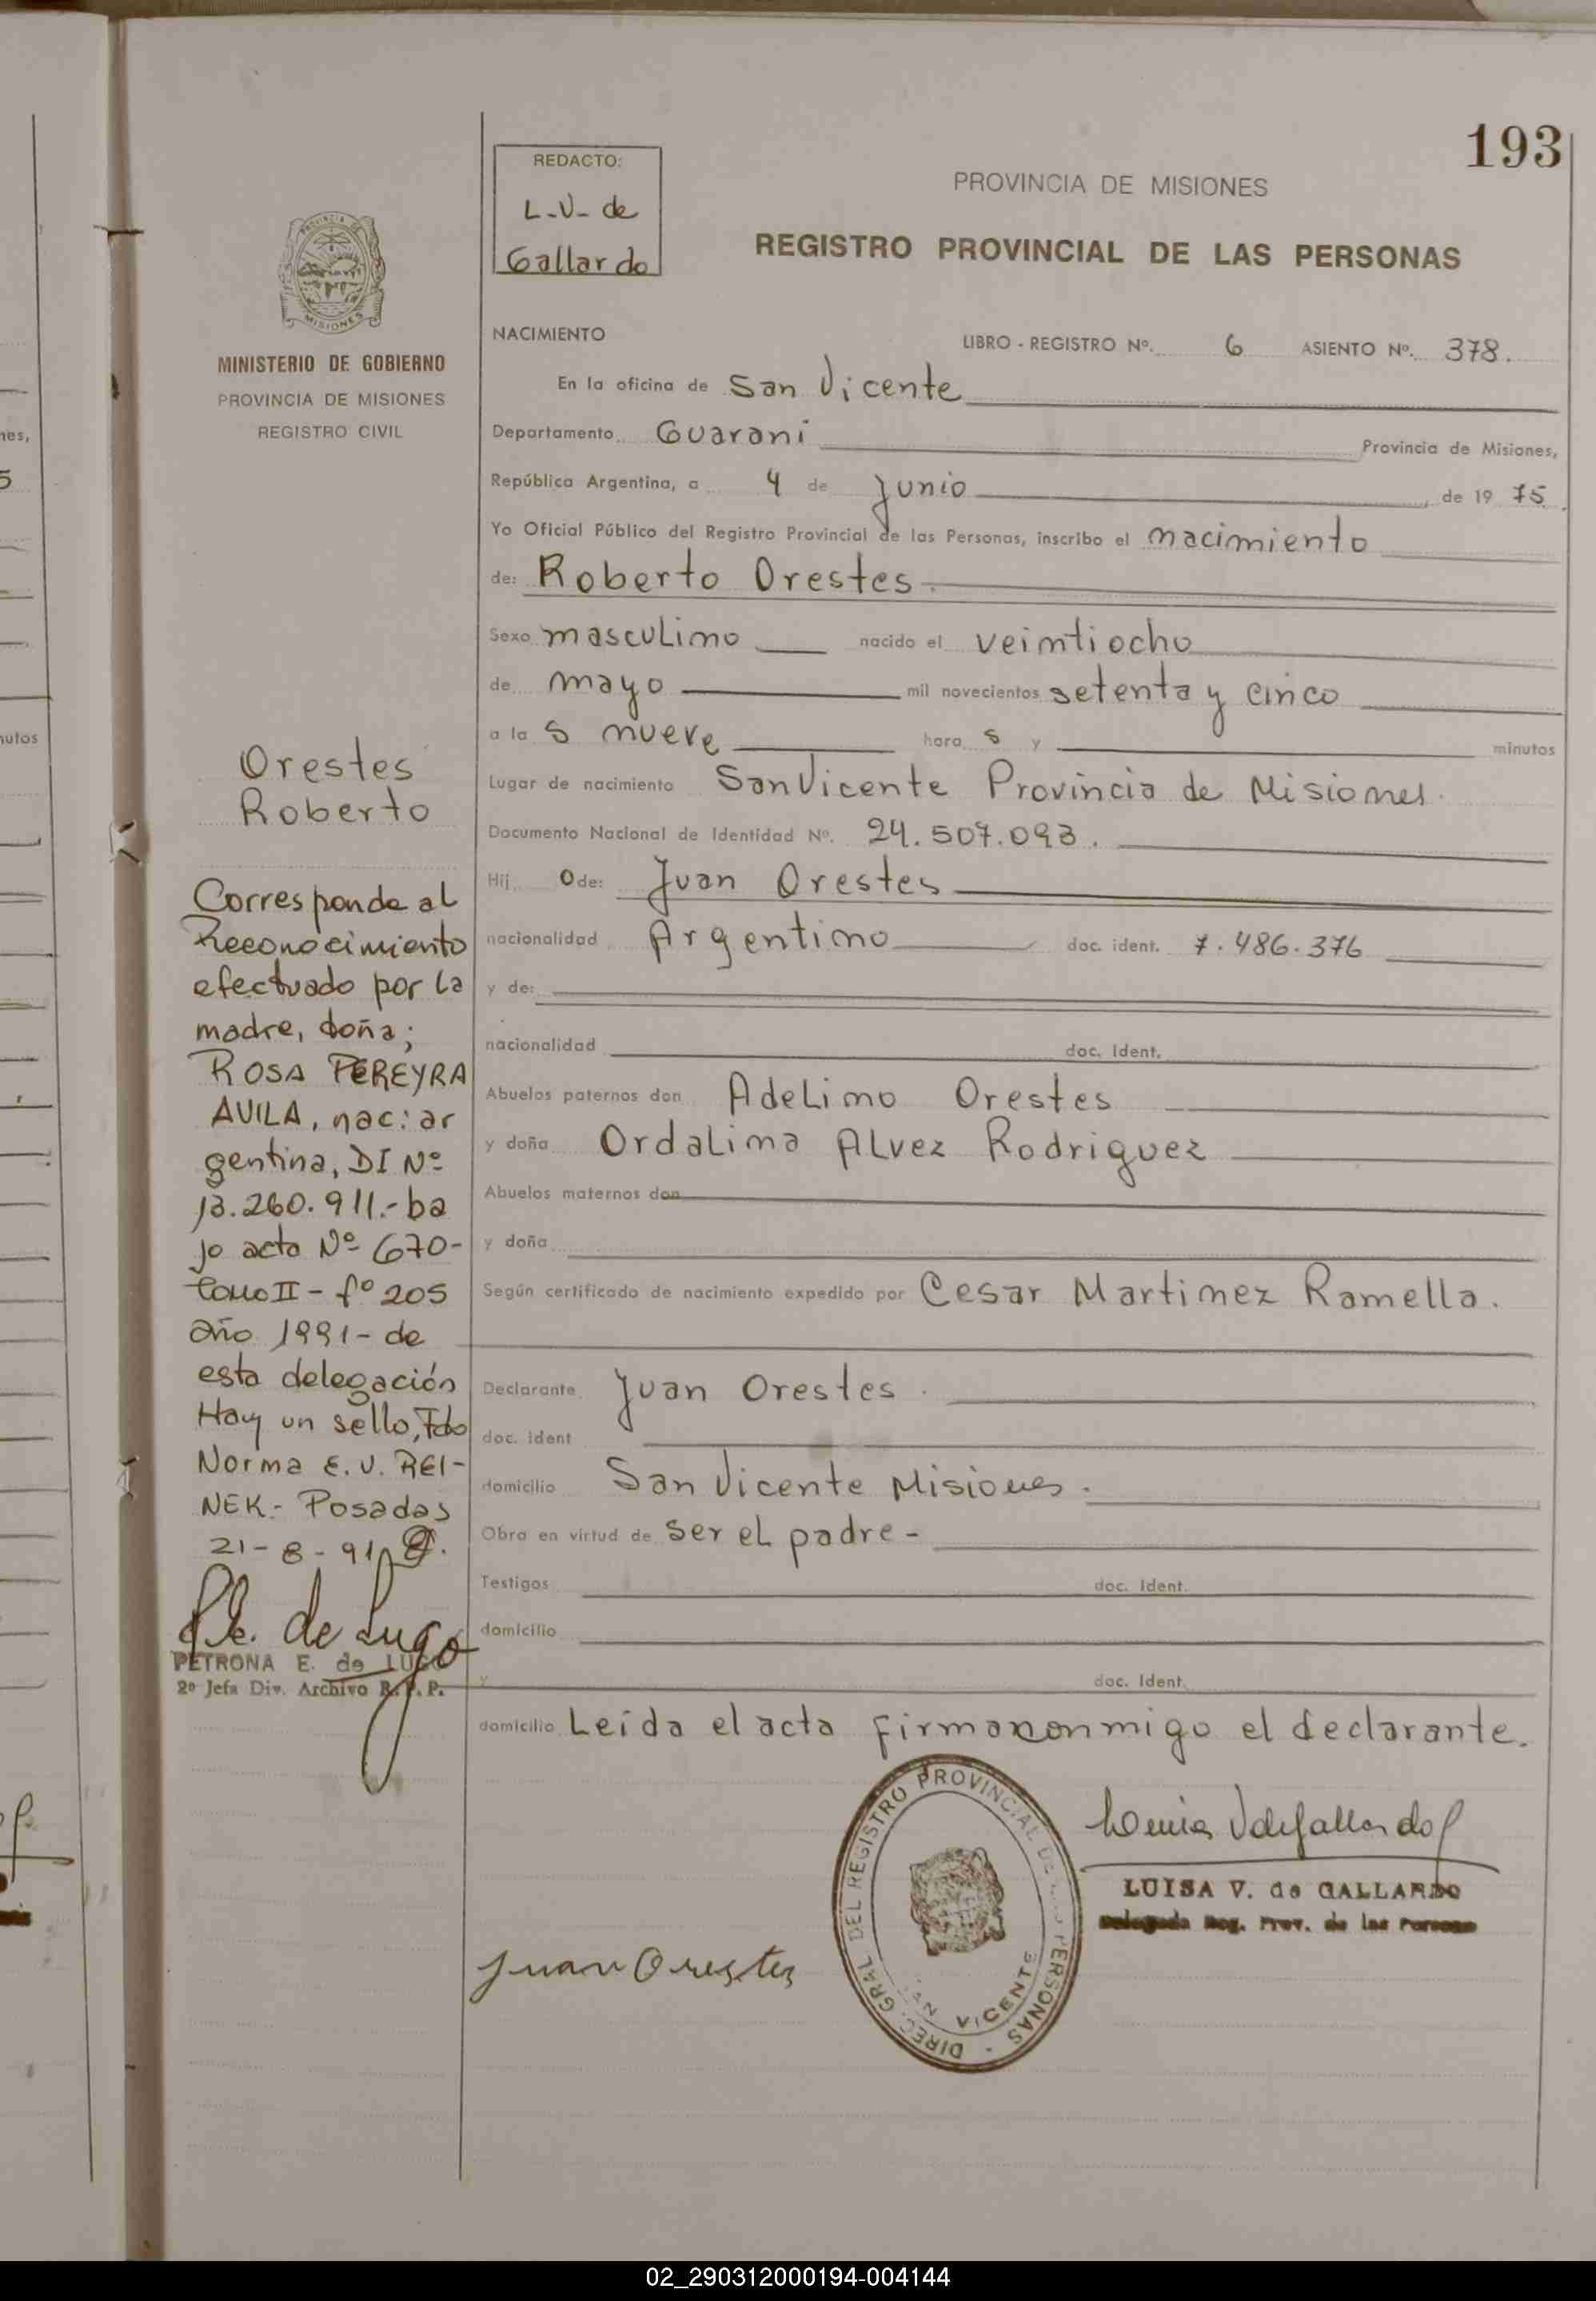 193
REDACTO:
L-V- de
Gallardo
PROVINCIA DE MISIONES
REGISTRO PROVINCIAL DE LAS PERSONAS
MISIONES
MINISTERIO DE GOBIERNO
PROVINCIA DE MISIONES
REGISTRO CIVIL
NACIMIENTO
LIBRO - REGISTRO Nº. 6 ASIENTO Nº. 378.
En la oficina de San Vicente
Departamento Guarani Provincia de Misiones,
República Argentina, a 4 de Junio de 19 75
Yo Oficial Público del Registro Provincial de las Personas, inscribo el nacimiento
de: Roberto Orestes.
Sexo masculino nacido el veintiocho
de mayo mil novecientos setenta y cinco
a la s nueve hora s y minutos
Lugar de nacimiento San Vicente Provincia de Misiones.
Documento Nacional de Identidad Nº. 24.507.093.
Hij o de: Juan Orestes
nacionalidad Argentino doc. ident. 7.486.376
y de:
nacionalidad doc. Ident.
Abuelos paternos don Adelino Orestes
y doña Ordalina Alvez Rodriguez
Abuelos maternos don
y doña
Según certificado de nacimiento expedido por Cesar Martinez Ramella.
Declarante Juan Orestes.
doc. ident
domicilio San Vicente Misiones.
Obra en virtud de ser el padre -
Testigos doc. Ident.
domicilio
y doc. Ident.
domicilio Leída el acta firma conmigo el declarante.
Orestes
Roberto
Corresponde al
Reconocimiento
efectuado por la
madre, doña;
ROSA PEREYRA
AVILA, nac: ar
gentina, DI Nº
13.260.911.- ba
jo acta Nº 670-
tomo II - fº 205
año 1991 - de
esta delegación
Hay un sello, Fdo
Norma E. V. REI-
NEK.- Posadas
21-8-91
P.E. de Lugo
PETRONA E. de LUGO
2º Jefa Div. Archivo R.P.P.
Juan Orestes
DIREC. GRAL DEL REGISTRO PROVINCIAL DE LAS PERSONAS -
SAN VICENTE
Luisa V de Gallardo
LUISA V. de GALLARDO
Delegada Reg. Prov. de las Personas
nes,
5
nutos
02_290312000194-004144